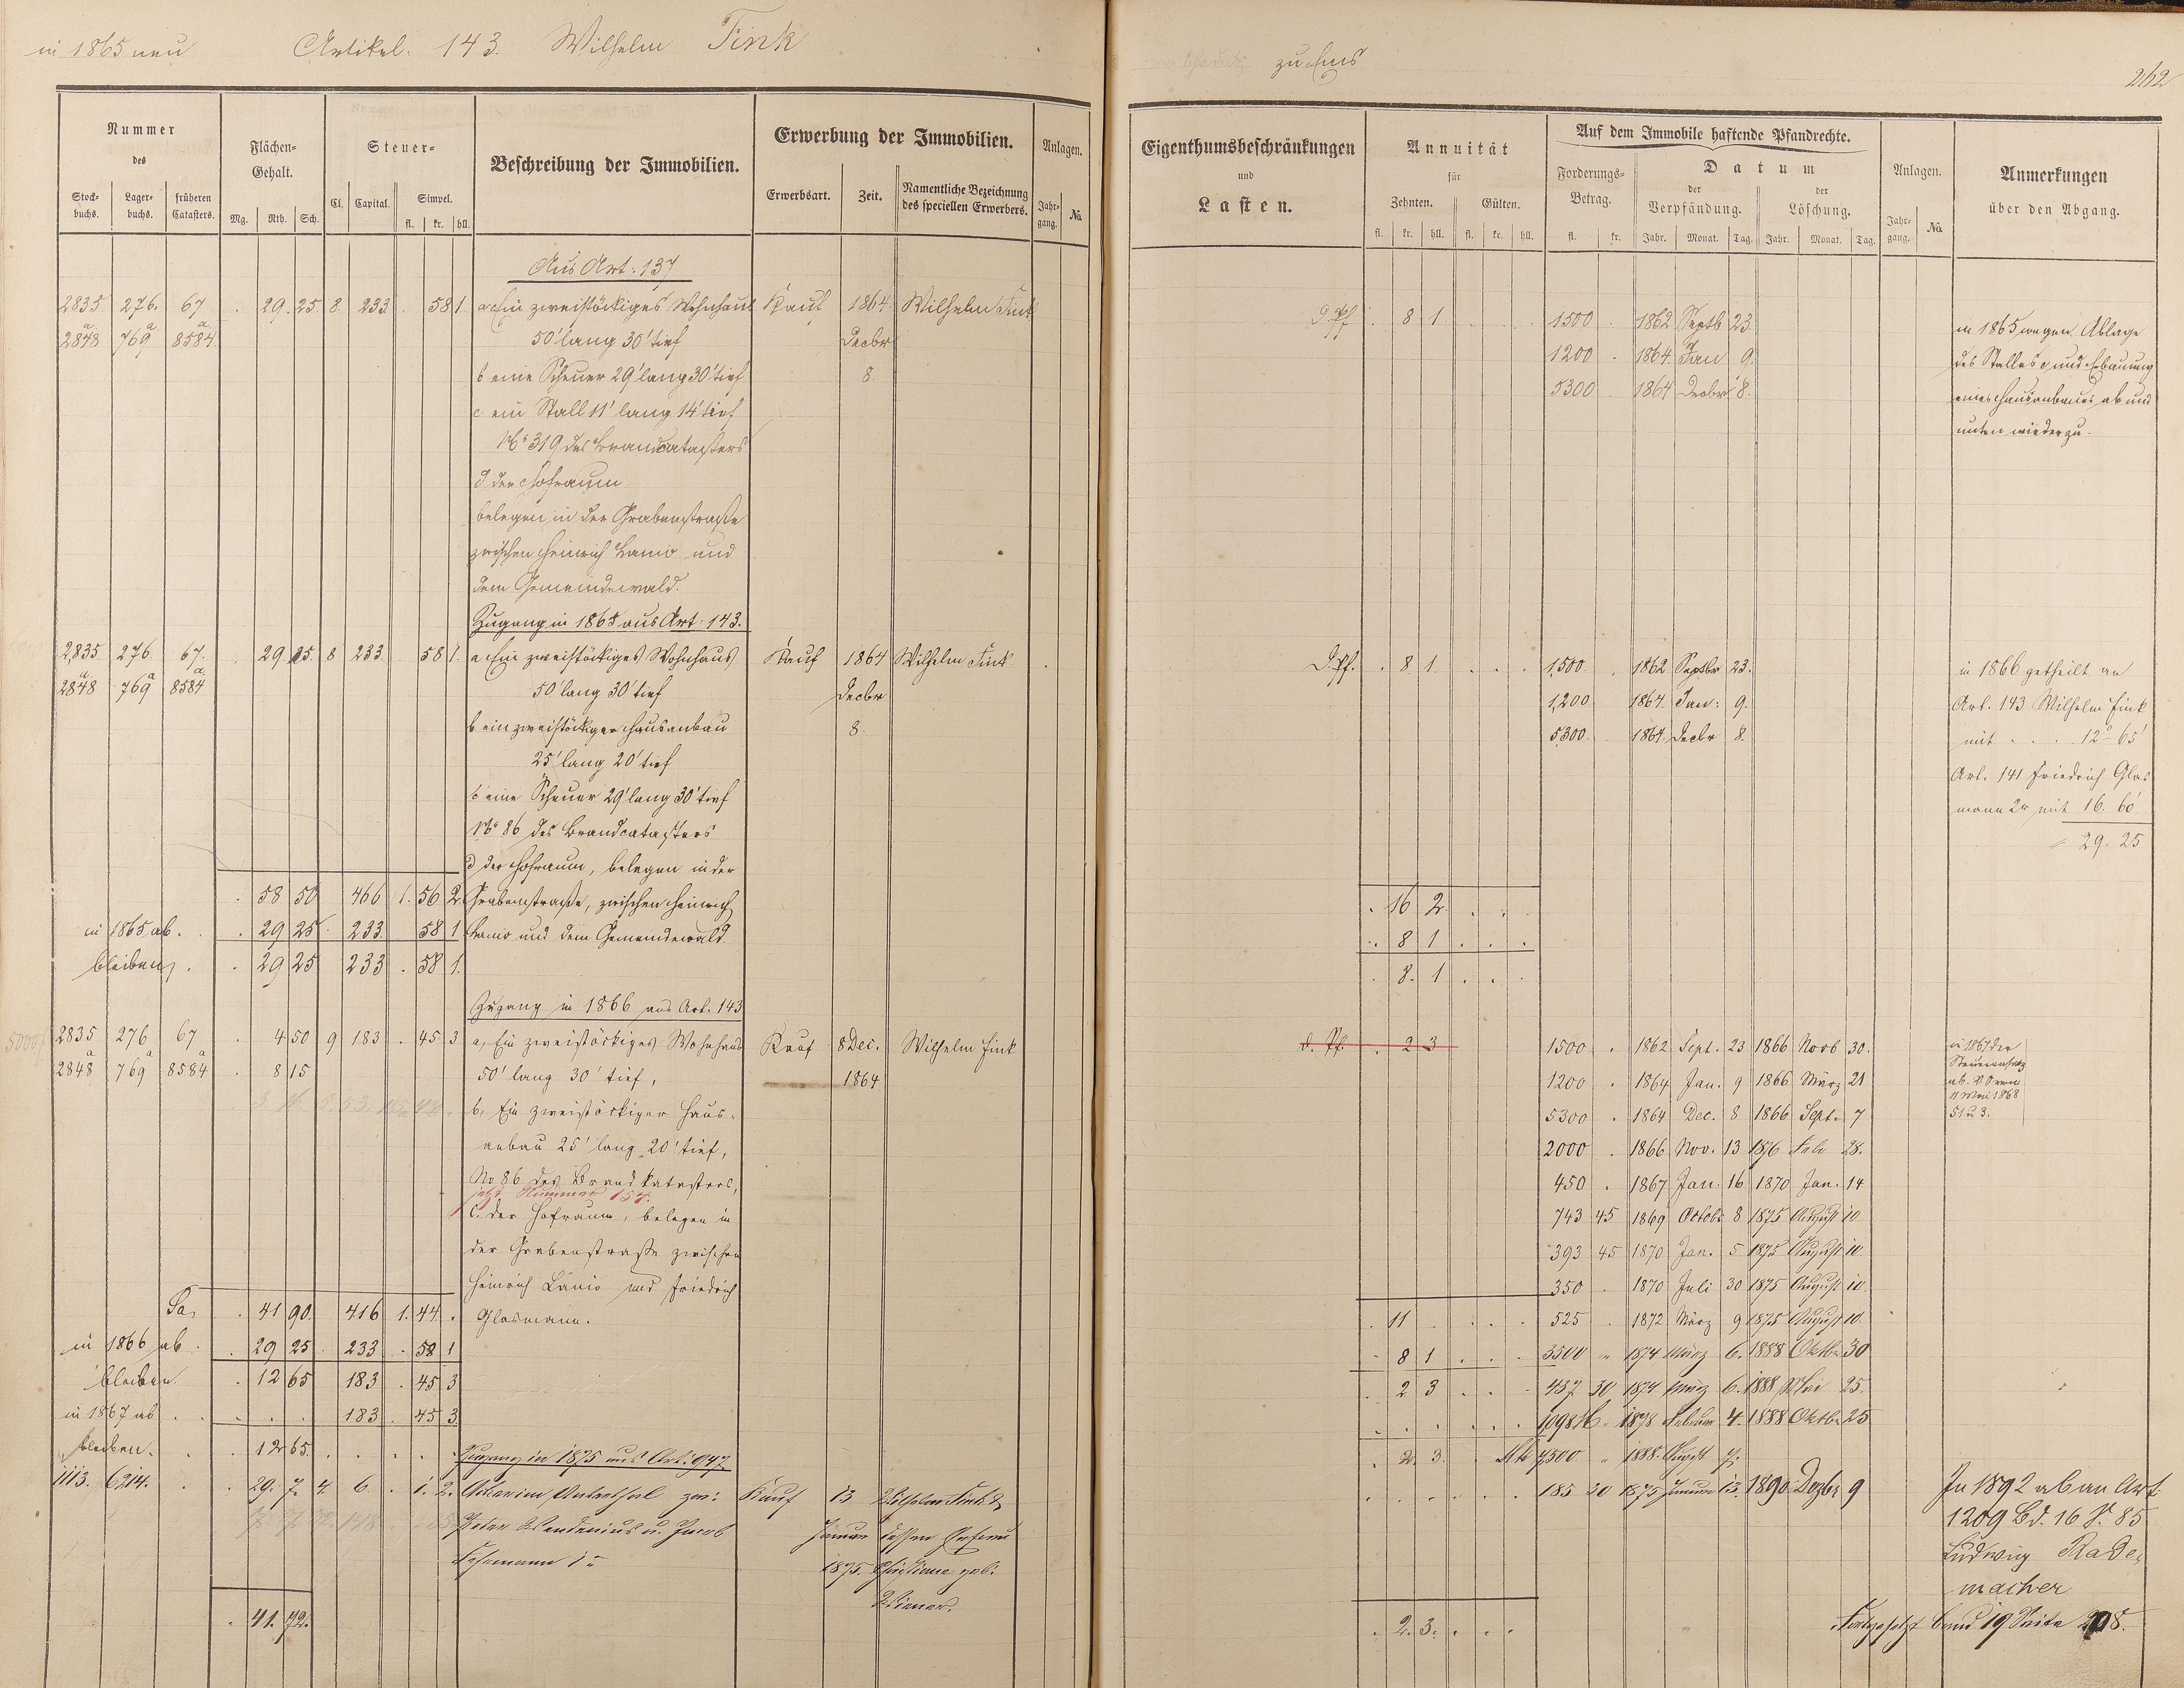 in 1865 neu Artikel. 143. Wilhelm Fink
Nummer
des
Stock-
buchs.
Lager-
buchs.
früheren
Catasters.
Flächen-
Gehalt.
Mg. Rth. Sch.
Steuer-
Cl. Capital. Simpel.
fl. kr. hll.
Beschreibung der Immobilien.
Erwerbung der Immobilien.
Erwerbsart. Zeit. Namentliche Bezeichnung
des speciellen Erwerbers.
Anlagen.
Jahr-
gang. No.
Aus Art: 137
2835 276. 67 . 29. 25. 8. 233 . 58 1. a Ein zweistöckiges Wohnhaus Kauf 1864 Wilhelm Fink
2848a 769a 8584a 50' lang 30' tief Decbr
b eine Scheuer 29' lang 30' tief 8.
c ein Stall 11' lang 14' tief
No 319 des Brandcatasters
d der Hofraum
belegen in der Grabenstraße
zwischen Heinrich Lanio und
dem Gemeindewald.
Zugang in 1865 aus Art: 143.
2835. 276. 67. . 29. 25. 8 233. . 58 1. a Ein zweistöckiges Wohnhaus Kauf 1864 Wilhelm Fink
2848a 769a 8584a 50' lang 30' tief Decbr
b ein zweistöckiger Hausanbau 8.
25' lang 20' tief
c eine Scheuer 29' lang 30' tief
No 86 des Brandcatasters
d der Hofraum, belegen in der
. 58 50 466 1. 56 2. Grabenstraße, zwischen Heinrich
in 1865 ab. . . 29 25 . 233. . 58 1 Lanio und dem Gemeindewald.
bleiben . . 29 25 233 . 58 1.
Zugang in 1866 aus Art. 143
2835 276 67 . 4 50 9 183 . 45 3 a, Ein zweistöckiges Wohnhaus Kauf 8 Dec. Wilhelm Fink
2848a 769a 8584a . 8 15 50' lang 30' tief, 1864
b, Ein zweistöckiger Haus-
anbau 25' lang 20' tief,
No 86 des Brandkatasters,
jetzt Nummer 157.
c. der Hofraum, belegen in
der Grabenstraße zwischen
Heinrich Lanio und Friedrich
Sa. . 41 90. 416 1. 44 . Glasmann.
in 1866 ab . . 29 25 . 233 . 58 1
bleiben . 12 65 183 . 45 3
in 1867 ab . . . . . 183 . 45 3
bleiben. . . 12 65. . . . .
Zugang in 1875 aus Art: 947.
1113. 6214. . . 29. 7. 4. 6 . 1. 2. Kauf 13 Wilhelm Fink &
Peter Wendenius u. Jacob Januar dessen Ehefrau
1875. Christiane geb.
. 41. 72.
zu Ems
262
Eigenthumsbeschränkungen
und
Lasten.
Annuität
für
Zehnten. Gülten.
fl. kr. hll. fl. kr. hll.
Auf dem Immobile haftende Pfandrechte.
Forderungs-
Betrag.
fl. kr.
Datum
der
Verpfändung.
der
Löschung.
Jahr. Monat. Tag. Jahr. Monat. Tag.
Anlagen.
Jahr-
gang. No.
Anmerkungen
über den Abgang.
D. Pf . 8 1 . . . 1500 . 1862 Septb 23.
1200 . 1864 Jan 9.
5300 . 1864 Decbr 8.
in 1865 wegen Ablage
des Stalles c und Erbauung
eines Hausanbaues ab und
unten wieder zu.
D. Pf. . 8. 1. . . . 1,500. . 1862 Septbr 23.
1,200 1864. Jan: 9.
5,300. 1864. Decbr 8.
in 1866 getheilt an
Art. 143 Wilhelm Fink
mit . . . 12° 65'
Art. 141 Friedrich Glas
mann 2r mit 16. 60'
= 29. 25
. 16 2. . . .
. 8 1 . . .
. 8. 1 . . .
d. Pf. . 2 3 1500 . 1862 Sept. 23 1866 Novb 30.
1200 . 1864 Jan. 9 1866 März 21
5300 . 1864 Dec. 8 1866 Sept. 7
2000 . 1866 Nov. 13 1876 Feb 28.
450 . 1867 Jan. 16 1870 Jan. 14
743 45 1869 Octob. 8 1875 August 10
393 45 1870 Jan. 5 1875 August 10
350 . 1870 Juli 30 1875 August 10.
. 11 . . . . 525 . 1872 März 9 1875 August 10.
. 8 1 . . . 3500 " 1874 März 6. 1888 Oktbr 30
. 2 3 . . . 437 30 1874 März 6. 1888 Mai 25.
1098 M. " 1878 Februar 4. 1888 Oktbr 25
. 2. 3. . Mk 7,500 " 1888. August 7.
. . . . . . 185 20 1875 Januar 13. 1890 Dezbr 9
in 1867 der
Steueransatz
ab. V O vom
11 Mai 1868
51 u 3.
In 1892 ab an Art.
1209 Bd. 16 S. 85
Ludwig Rade-
macher
. 2. 3. . . .
Fortgesetzt Band 19 Seite 208.